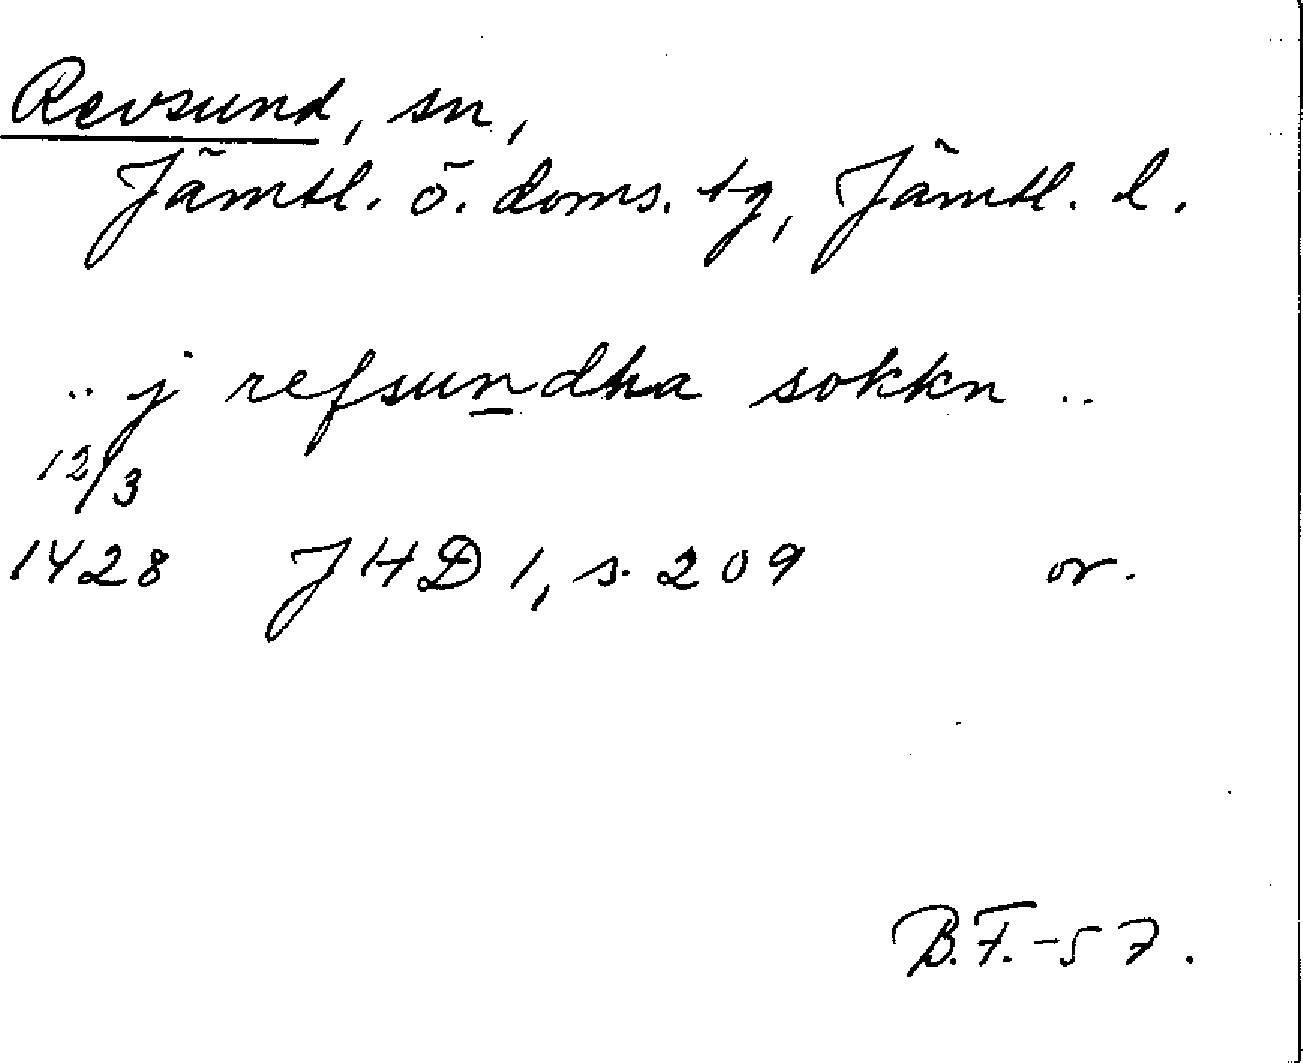 Revsund, sn,
Jämtl. ö. doms. tg, Jämtl. l.
.. j refsundha sokkn ..
12/3
1428 JHD 1, s. 209 or.
B.F.-57.